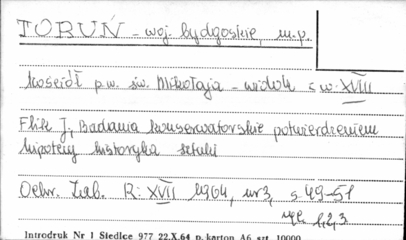 TORUŃ - woj. bydgoskie, m.p.
kościół p.w. św. Mikołaja - widok z w. XVIII
Flik J., Badania konserwatorskie potwierdzeniem
hipotezy historyka sztuki
Ochr. Zab. R. XVII 1964, nr 3, s. 49-51
ryc. 1,2,3
Introdruk Nr 1 Siedlce 977 22.X.64 p. karton A6 szt. 10000